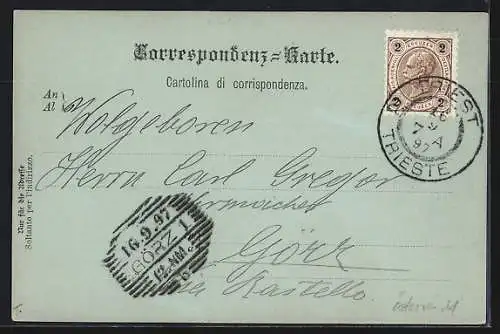 Correspondenz-Karte.
Cartolina di corrispondenza.
An
Al
2 KREUZER 2
2 2
TRIEST
97
TRIESTE
Wolgeboren
Herrn Carl Gregor
Görz
Via Kastello.
16.9.97
GÖRZ 1
Nur für die Adresse
Soltanto per l'indirizzo.